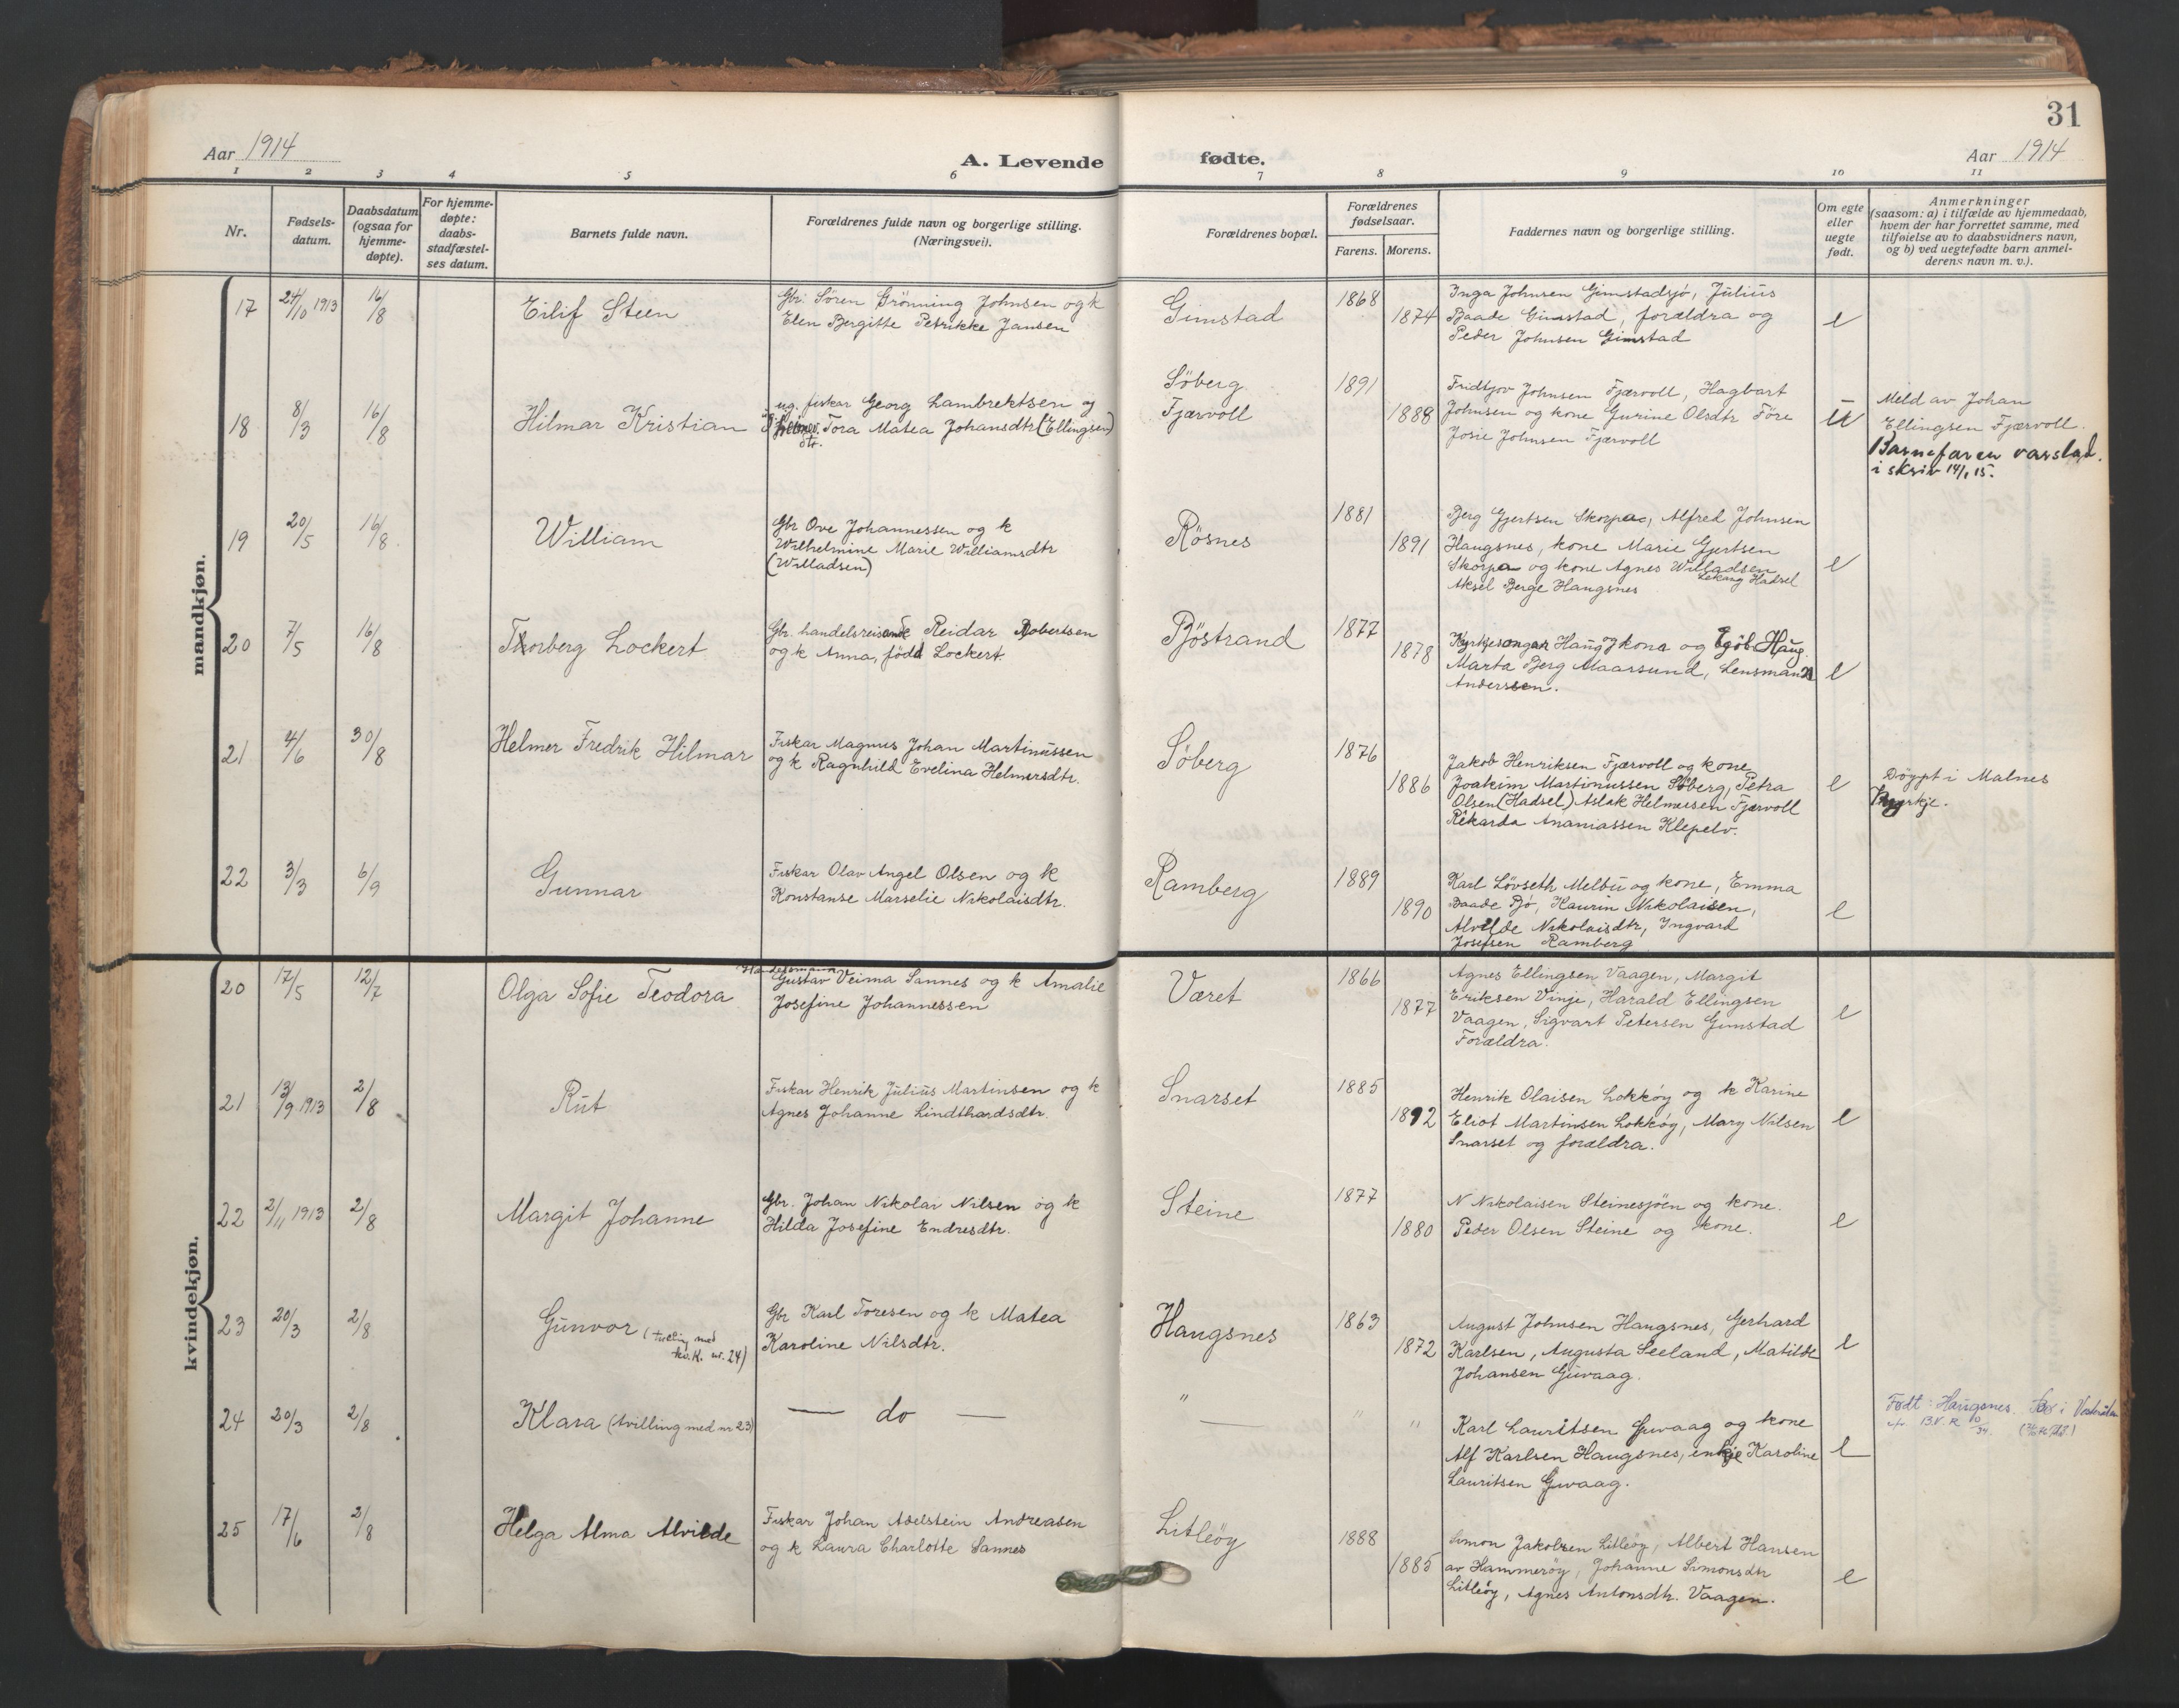 31
Aar 1914
A. Levende fødte.
Aar 1914
1 2 3 4 5 6 7 8 9 10 11
Nr.
Fødsels-
datum.
Daabsdatum
(ogsaa for
hjemme-
døpte).
For hjemme-
døpte:
daabs-
stadfæstel-
ses datum.
Barnets fulde navn.
Forældrenes fulde navn og borgerlige stilling.
(Næringsvei).
Forældrenes bopæl.
Forældrenes
fødselsaar.
Farens. Morens.
Faddernes navn og borgerlige stilling.
Om egte
eller
uegte
født.
Anmerkninger
(saasom: a) i tilfælde av hjemmedaab,
hvem der har forrettet samme, med
tilføielse av to daabsvidners navn,
og b) ved uegtefødte barn anmel-
derens navn m. v.).
mandkjøn.
17 24/10 1913 16/8 Eilif Steen
Gbr. Sören Grönning Johnsen og k
Elen Bergitte Petrikke Jansen
Gimstad 1868 1874
Inga Johnsen Gimstadsjö, Julius
Baade Gimstad, forældra og
Peder Johnsen Gimstad
e
18 8/3 16/8 Hilmar Kristian
ug. fiskar Georg Lambrektsen og
Tora Matea Johansdtr (Ellingsen)
Söberg
Fjærvoll
1891 1888
Fridtjov Johnsen Fjærvoll, Hagbart
Johnsen og kone Gurine Olsdtr Före
Josie Johnsen Fjærvoll
u
Meld av Johan
Ellingsen Fjærvoll.
Barnefaren varslad.
i skriv 14/1 15.
19 20/5 16/8 William
Gbr Ove Johannessen og k
Wilhelmine Marie Williamsdtr
(Willadsen)
Rösnes 1881 1891
Berg Gjertsen Skorpa, Alfred Johnsen
Haugsnes, kone Marie Gjertsen
Skorpa og kone Agnes Willadsen
Lekang Hadsel
Aksel Berge Haugsnes
e
20 7/5 16/8 Thorberg Lockert
Gbr. handelsreisande Reidar Robertsen
og k Anna, född Lockert.
Böstrand 1877 1878
Kyrkjesongar Haug og kona og Haug.
Marta Berg Maarsund, Lensmann
Anderssen.
e
21 4/6 30/8 Helmer Fredrik Hilmar
Fiskar Magnus Johan Martinussen
og k Ragnhild Evelina Helmersdtr.
Söberg 1876 1886
Jakob Henriksen Fjærvoll og kone
Joakim Martinussen Söberg, Petra
Olsen (Hadsel) Aslak Helmersen Fjærvoll
Rikarda Ananiassen Klepelv.
e
Döypt i Malnes
kyrkje.
22 3/3 6/9 Gunnar
Fiskar Olav Angel Olsen og k
Konstanse Marselie Nikolaisdtr.
Ramberg 1889 1890
Karl Lövseth Melbu og kone, Emma
Baade Bö, Kaurin Nikolaisen,
Alvilde Nikolaisdtr, Ingvard
Josefsen Ramberg
e
kvindekjøn.
20 17/5 12/7 Olga Sofie Teodora
Handelsmann
Gustav Veima Sannes og k Amalie
Josefine Johannessen
Været 1866 1877
Agnes Ellingsen Vaagen, Margit
Eriksen Vinje, Harald Ellingsen
Vaagen, Sigvart Petersen Gimstad
Forældra.
e
21 13/9 1913 2/8 Rut
Fiskar Henrik Julius Martinsen og k
Agnes Johanne Lindthardsdtr.
Snarset 1885 1892
Henrik Olaisen Lokköy og k Karine
Eliot Martinsen Lokköy, Mary Nilsen
Snarset og forældra.
e
22 2/11 1913 2/8 Margit Johanne
Gbr. Johan Nikolai Nilsen og k
Hilda Josefine Endresdtr.
Steine 1877 1880
N Nikolaisen Steinesjöen og kone.
Peder Olsen Steine og kone.
e
23 20/3 2/8 Gunvor (tvilling med
kv.k. nr. 24)
Gbr Karl Toresen og k Matea
Karoline Nilsdtr.
Haugsnes 1863 1872
August Johnsen Haugsnes, Gerhard
Karlsen, Augusta Seeland, Matilde
Johansen Guvaag.
e
24 20/3 2/8 Klara (tvilling med nr 23)
— do —
" — " "
Karl Lauritsen Guvaag og kone
Alf Karlsen Haugsnes, enkje Karoline
Lauritsen Guvaag.
e
Født: Haugsnes. Bø i Vesterålen
25 17/6 2/8 Helga Alma Alvilde
Fiskar Johan Adelstein Andreasen
og k Laura Charlotte Sannes
Litleöy 1888 1885
Simon Jakobsen Litleöy, Albert Hansen
av Hammeröy, Johanne Simonsdtr
Litleöy, Agnes Antonsdtr. Vaagen.
e